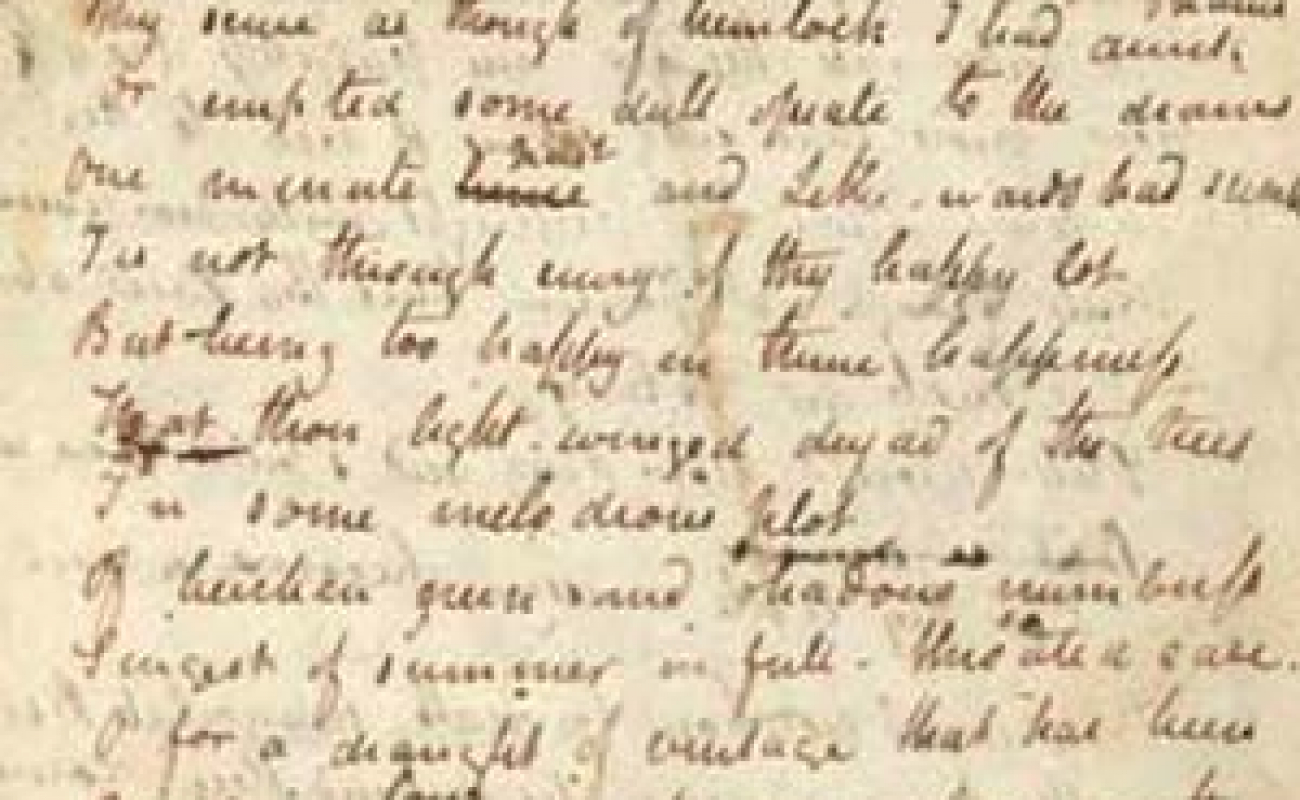 My sense as though of hemlock I had drunk
Or emptied some dull opiate to the drains
One minute hence past and Lethe-wards had sunk
Tis not through envy of thy happy lot
But being too happy in thine happiness
That thou light-winged dryad of the trees
In some melodious plot
Of beechen green and shadows numberless
Singest of summer in full-throated ease.
O for a draught of vintage that has been